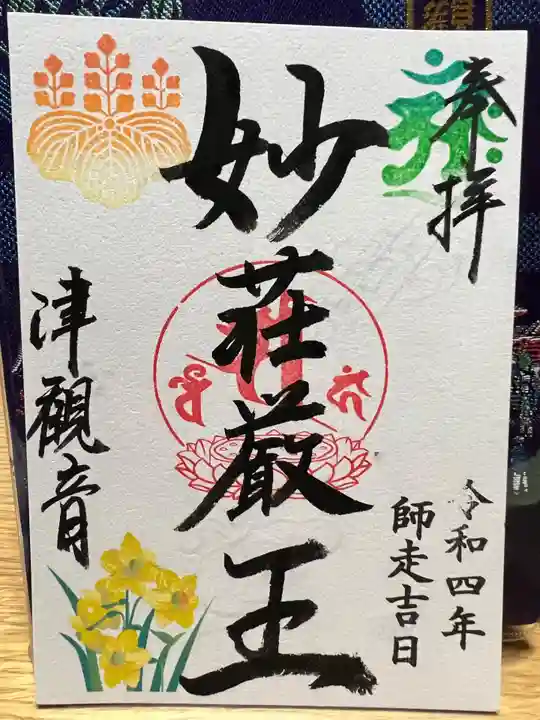 奉拝
妙荘厳王
令和四年
師走吉日
津観音